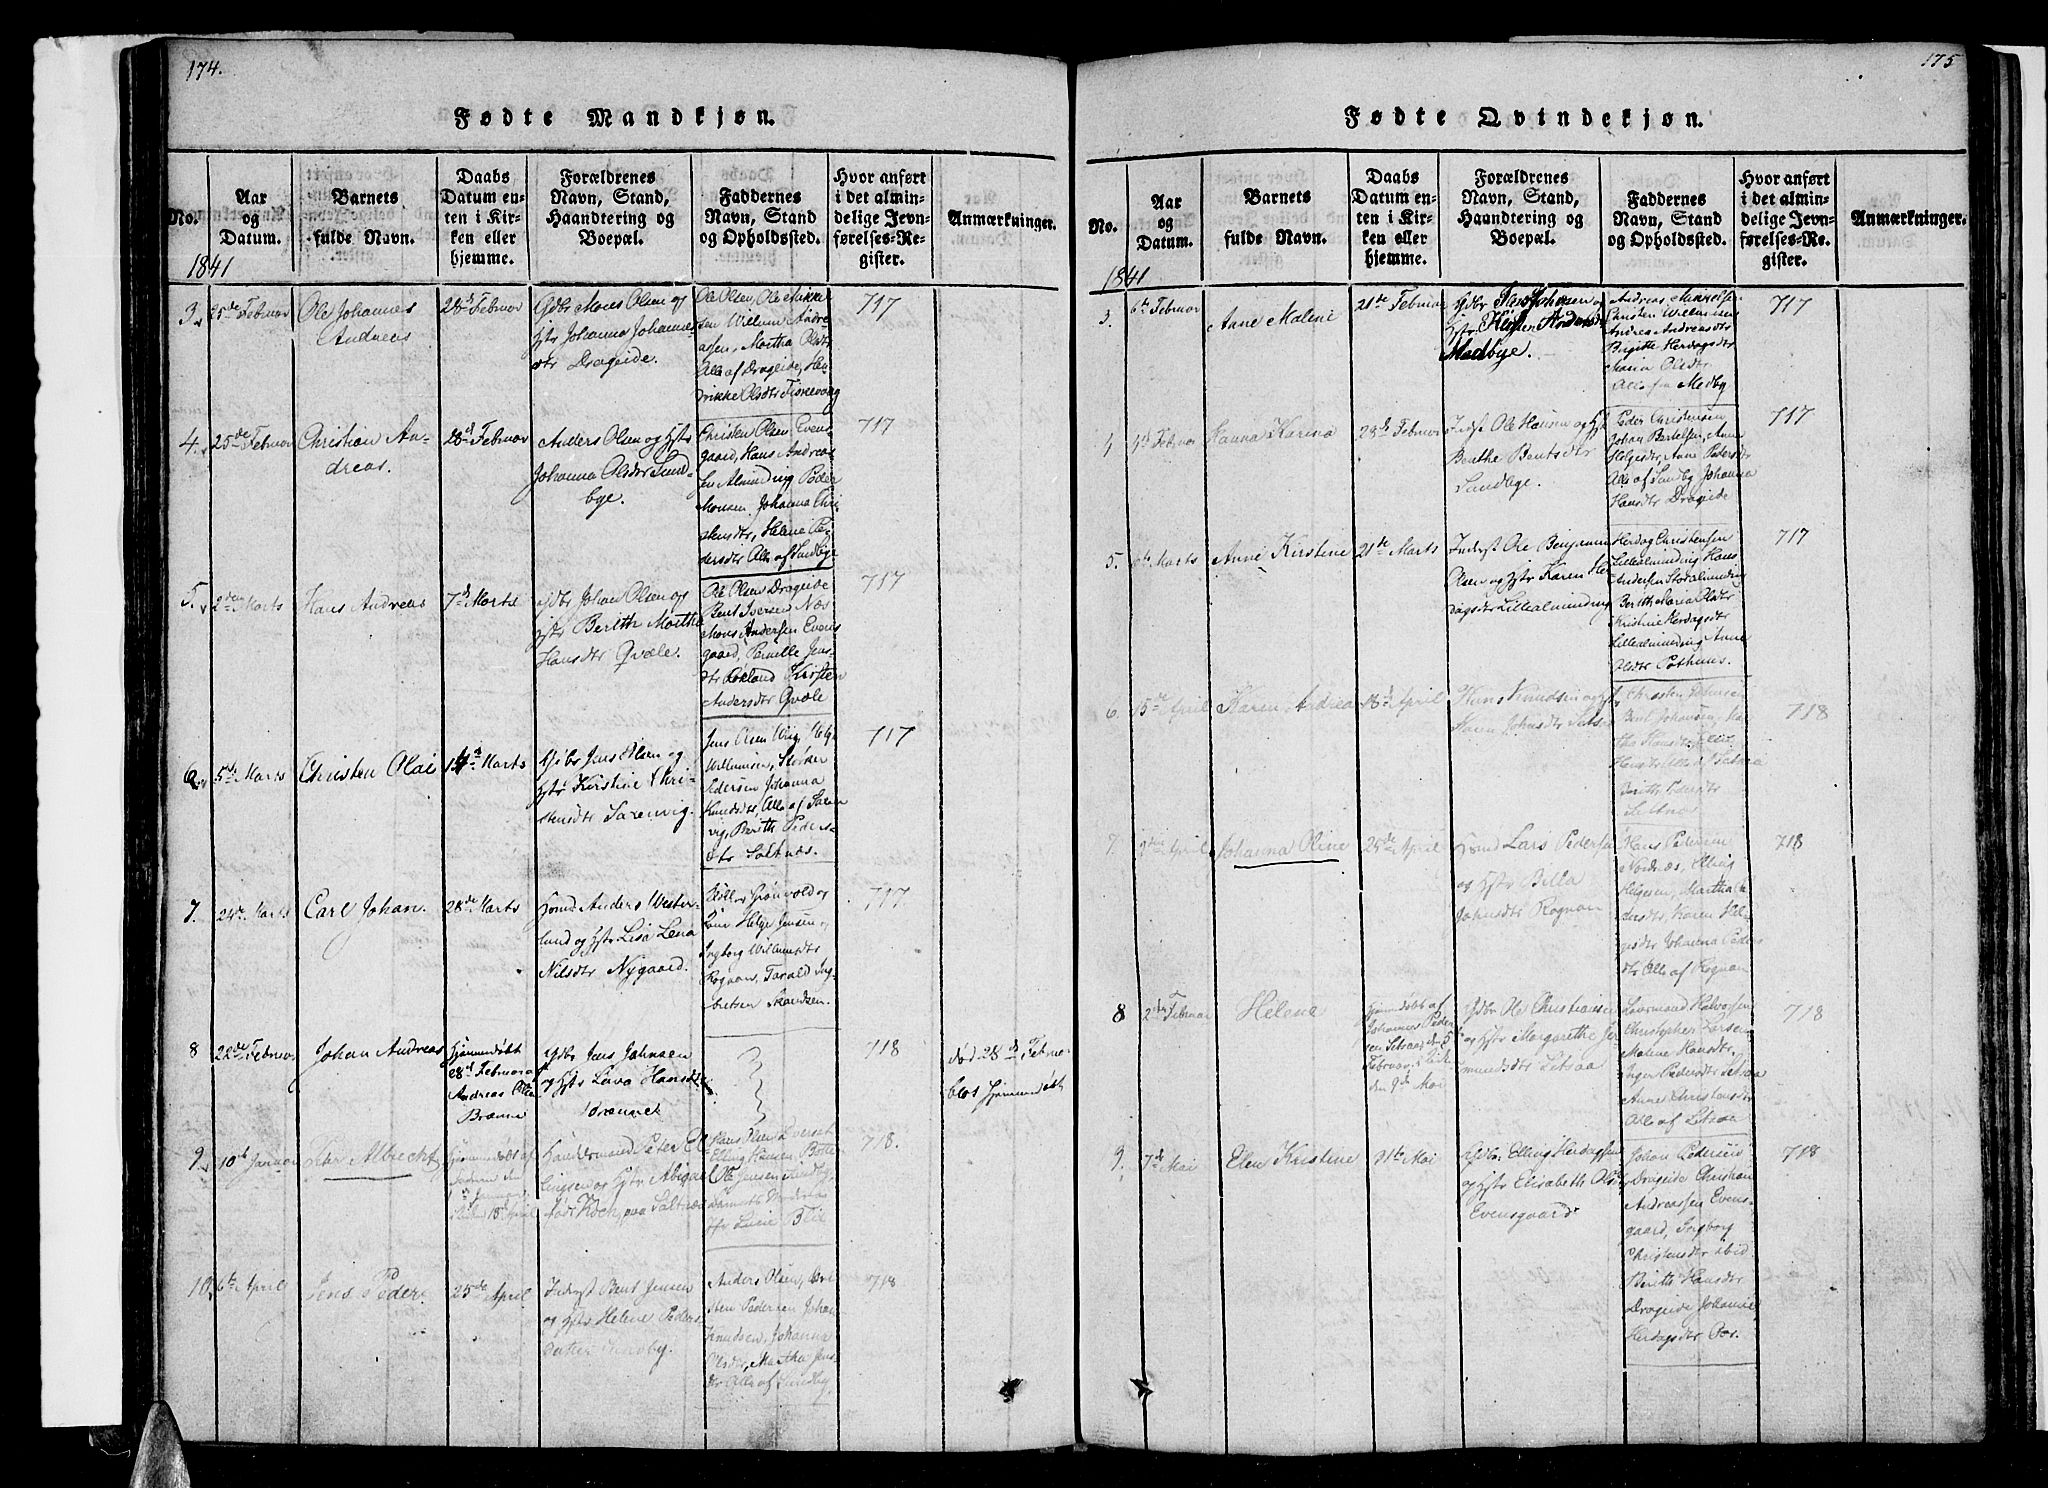 174.
Fødte Mandkjøn.
No.
Aar
og
Datum.
Barnets
fulde Navn.
Daabs
Datum en-
ten i Kir-
ken eller
hjemme.
Forældrenes
Navn, Stand,
Haandtering og
Boepæl.
Faddernes
Navn, Stand
og Opholdssted.
Hvor anført
i det almin-
delige Jevn-
førelses-Re-
gister.
Anmærkninger.
1841
3.
25de Februar
Ole Johannes
Andreas
28de Februar
Gdbr Mons Olsen og
Hstr Johanna Johannes
dtr Drageide.
Ole Olsen, Ole Mikke
sen Willum Andre
assen, Martha Olsdtr
Alle af Drageide, Hen
rikke Olsdtr Fiskevaag
717
4.
25de Februar
Christian An-
dreas.
28d Februar
Anders Olsen og Hstr
Johanna Olsdtr Sund-
bye.
Christen Olsen Evens-
gaard, Hans Andreas
sen Alminding Peder
Monsen. Johanna Chri
stensdtr, Helene Pe-
dersdtr Alle af Sundbye
717
5.
2den Marts
Hans Andreas
7de Marts
Gdbr Johan Olsen og
Hstr Berith Martha
Hansdtr Qvæle.
Ole Olsen Drageide
Bent Iversen Næs
Mons Andersen Evens
gaard, Pernille Jens-
dtr Løkland Kirsten
Andersdtr Qvæle
717
6.
5te Marts
Christen Olai
14de Marts
Gdbr Jens Olsen og
Hstr Kirstine Chri-
stensdtr Saxenvig.
Jens Olsen Wig, Helge
Willumsen, Størker
Pedersen Johanna
Knudsdtr, Alle af Saxen
vig, Berith Peders-
dtr Saltnæs.
717
7.
24de Marts
Carl Johan.
28de Marts
Hmd Anders Wester-
lund og Hstr Lisa Lena
Nilsdtr Nygaard.
Møller Grønvold og
Helge Jensen,
Ingborg Willumsdtr
Rognan, Tarald Ing-
bretsen Skandsen.
717
8
22de Februar
Johan Andreas
Hjemmedøbt
28d Februar a
Andreas Olsen
Brænne
Gdbr Jens Johnsen
og Hstr Lava Hansdtr
Brænnet
718
død 28de Februar
blot Hjemmedøbt
9.
10de Januar
Peter Albrecht
Hjemmedøbt af
18de April
Handelsmand Peter El-
lingsen og Hstr Abigael
født Koch, paa Saltnæs
Hans Olsen Everset
Elling Hansen, Botten
Ole Jensen
718.
10.
6te April
Jens Peder
25de April
Inderst Bent Jensen
og Hstr Helene Peders
datter Sundby.
Anders Olsen, Chri
sten Pedersen Johan
Knudsen, Johanna
Olsdtr, Martha Jens-
dtr Alle af Sundby
718
175
Fødte Qvindekjøn.
No.
Aar
og
Datum.
Barnets
fulde Navn.
Daabs
Datum en-
ten i Kir-
ken eller
hjemme.
Forældrenes
Navn, Stand,
Haandtering og
Boepæl.
Faddernes
Navn, Stand
og Opholdssted.
Hvor anført
i det almin-
delige Jevn-
førelses-Re-
gister.
Anmærkninger.
1841
3.
6te Februar
Anne Malene
21de Februar
Gdbr Hans Johnsen og
Hstr Kirsten Andersdtr
Medbye.
Andreas Mikkelsen
Christen Willumsen
Andrea Andreasdtr
Brigitte Herdagsdtr
Maria Olsdtr
Alle fra Medby
717
4
4de Februar
Hanna Karina
28de Februar
Inderst Ole Hansen og Hstr
Berthe Bentsdtr
Sundbye.
Peder Christensen
Johan Bertelsen, Anne
Helgesdtr Anne Pedersdtr
Alle af Sundby Johanna
Hansdtr Drageide
717
5.
6te Marts
Anne Kirstine
21de Marts
Inderst Ole Benjamin
Olsen og Hstr Karen Her
dagsdtr Lillealminding
Herdag Christensen
Lillealminding Hans
Andersen Storalminding
Berith Maria Olsdtr
Kristine Herdagsdtr
Lillealminding Anne
Olsdtr Pothuus.
717
6.
15de April
Karen Andrea
18de April
Hans Knudsen og Hstr
Karen Johnsdtr Setsaa
Christen
Bent Johansen, Mar
tha Hansdtr,
Berith Pedersdtr
Saltnæs
718
7.
9de April
Johanna Oline
25de April
Hmd Lars Pedersen
og Hstr Billa
Johnsdtr Rognan
Hans Pedersen
Nordnæs, Elling
Helgesen, Martha An
dersdtr, Karen Hel-
gesdtr Johanna Peders
dtr Alle af Rognan
718
8
2den Februar
Helene
Hjemmedøbt af
Johannes Peder
sen Setsaa den 5
Februar, i Kirk
den 9de Mai
Gdbr Ole Christiansen
og Hstr Margarethe Jer
mundsdtr Setsaa
Laurmand Halvorsen
Christopher Larsen
Malene Hansdtr,
Inger Pedersdtr Setsaa
Anne Christensdtr
Alle af Setsaa
718
9.
7de Mai
Elen Kristine
31te Mai
Gdbr Elling Herdagssen
og Hstr Elisabeth Olsdtr
Evensgaard
Johan Pedersen
Drageide Christian
Andreassen Evens-
gaard, Ingborg
Christensdtr ibid
Berith Hansdtr
Drageide Johanne
Herdagsdtr Oer.
718